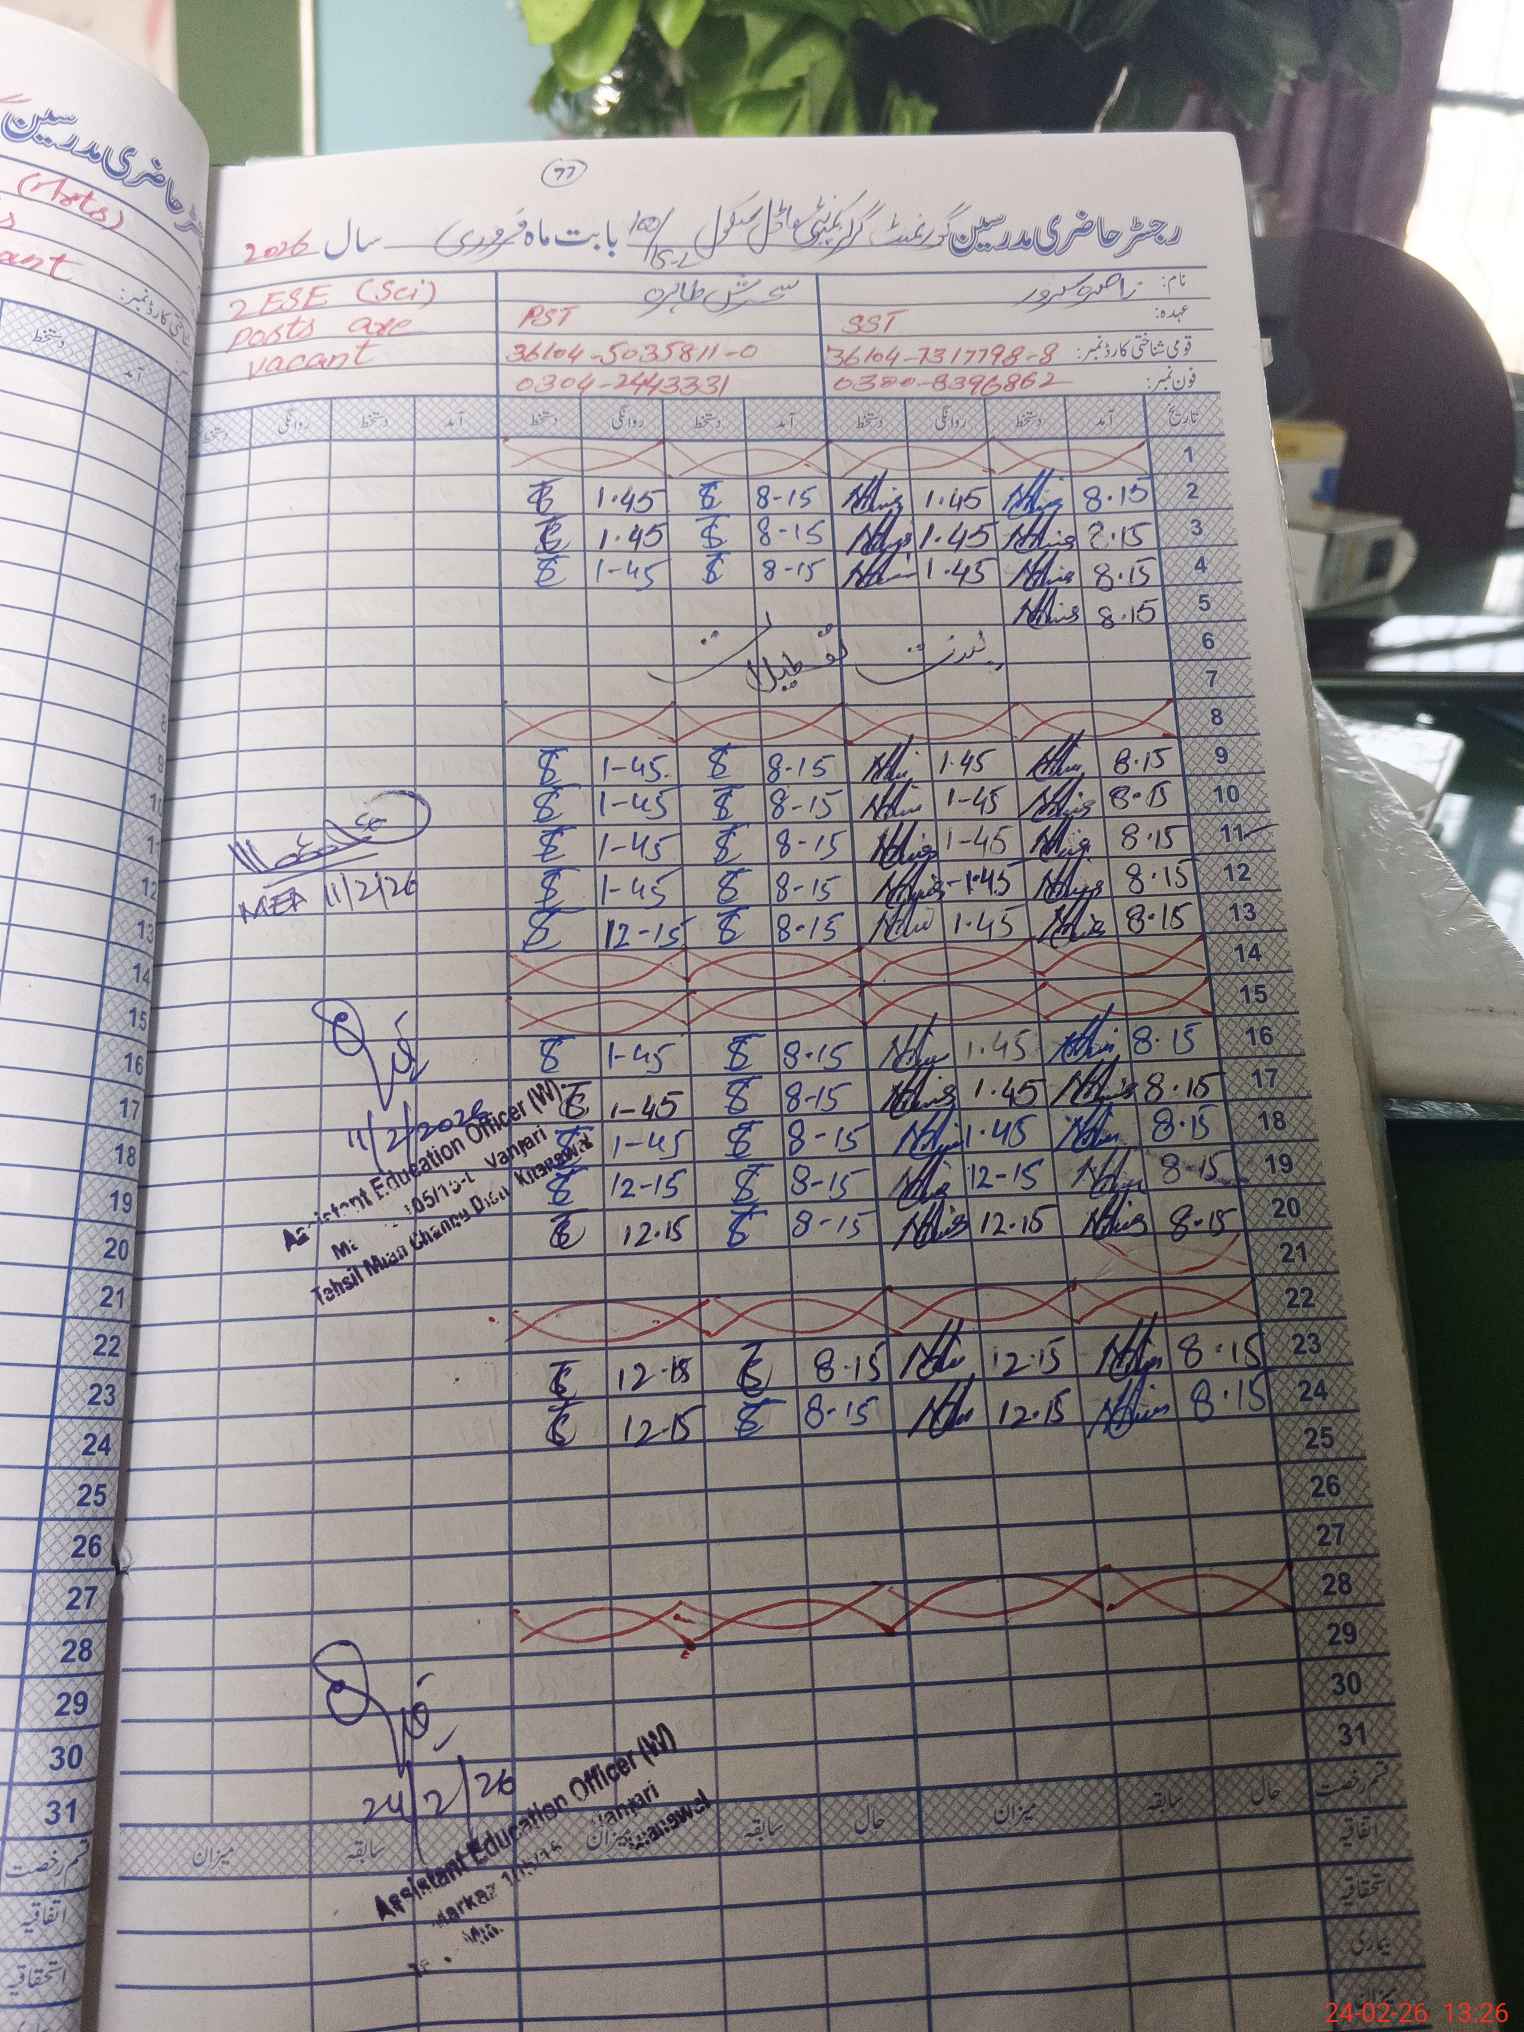 77
رجسٹر حاضری مدرسین گورنمنٹ گرلز کمیونٹی ماڈل سکول 100/15-L بابت ماہ فروری سال 2026
نام: سحرش طاہرہ
عہدہ: SST PST 2 ESE (Sci)
قومی شناختی کارڈ نمبر: 36104-7317798-8 36104-5035811-0 posts are
فون نمبر: 0300-8396862 0304-2443331 vacant
تاریخ آمد دستخط روانگی دستخط آمد دستخط روانگی دستخط آمد دستخط روانگی دستخط
1
2 8.15 1.45 8-15 1.45
3 8.15 1.45 8-15 1.45
4 8.15 1.45 8-15 1-45
5 8.15
6
7
تعطیلات
8
9 8.15 1.45 8.15 1-45
10 8.15 1-45 8-15 1-45
11 8.15 1-45 8-15 1-45
12 8.15 1.45 8-15 1-45
13 8.15 1.45 8-15 12-15
MEA 11/2/26
14
15
16 8.15 1.45 8.15 1-45
17 8.15 1.45 8-15 1-45
18 8.15 1.45 8-15 1-45
19 8.15 12-15 8-15 12-15
20 8.15 12.15 8-15 12.15
11/2/2026
Assistant Education Officer (W)
Vanjari
Tehsil Mian Channu Distt. Khanewal
21
22
23 8.15 12.15 8.15 12.15
24 8.15 12.15 8.15 12.15
25
26
27
28
29
30
31
24/2/26
Assistant Education Officer (W)
Markaz
قسم رخصت حال سابقہ میزان حال سابقہ میزان سابقہ میزان
اتفاقیہ
استحقاقیہ
بیماری
میزان
رجسٹر حاضری مدرسین
(Arts)
شناختی کارڈ نمبر:
آمد دستخط
8
9
10
11
12
13
14
15
16
17
18
19
20
21
22
23
24
25
26
27
28
29
30
31
قسم رخصت
اتفاقیہ
استحقاقیہ
24-02-26 13:26